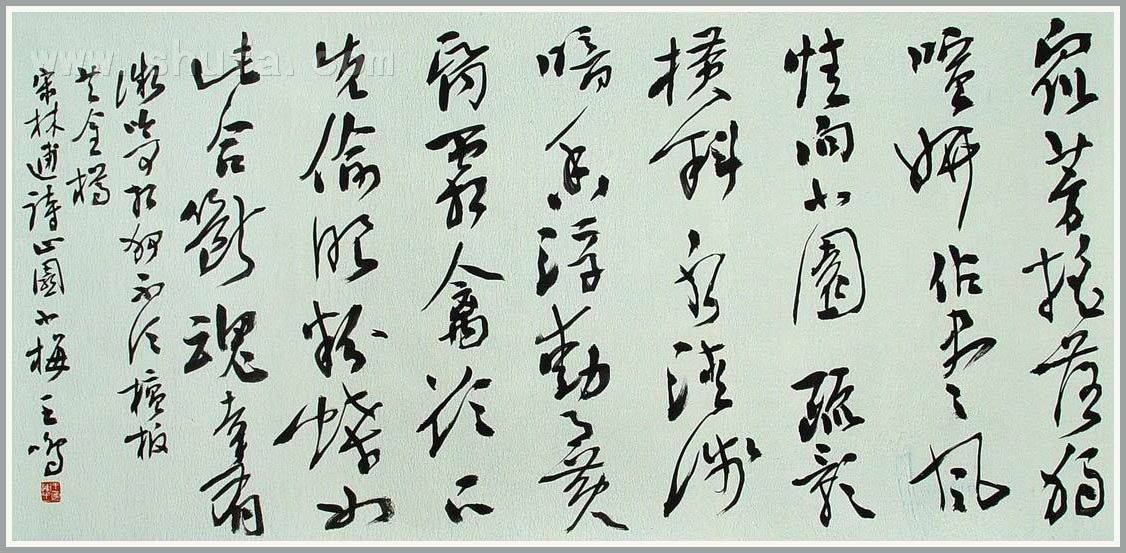 眾芳摇落獨
喧妍佔盡風
情向小園疏影
横斜水清淺
暗香浮動月黄
昏霜禽欲下
先偷眼粉蝶如
知合斷魂幸有
微吟可相狎不須檀板
共金樽
宋林逋詩山園小梅 王鸣